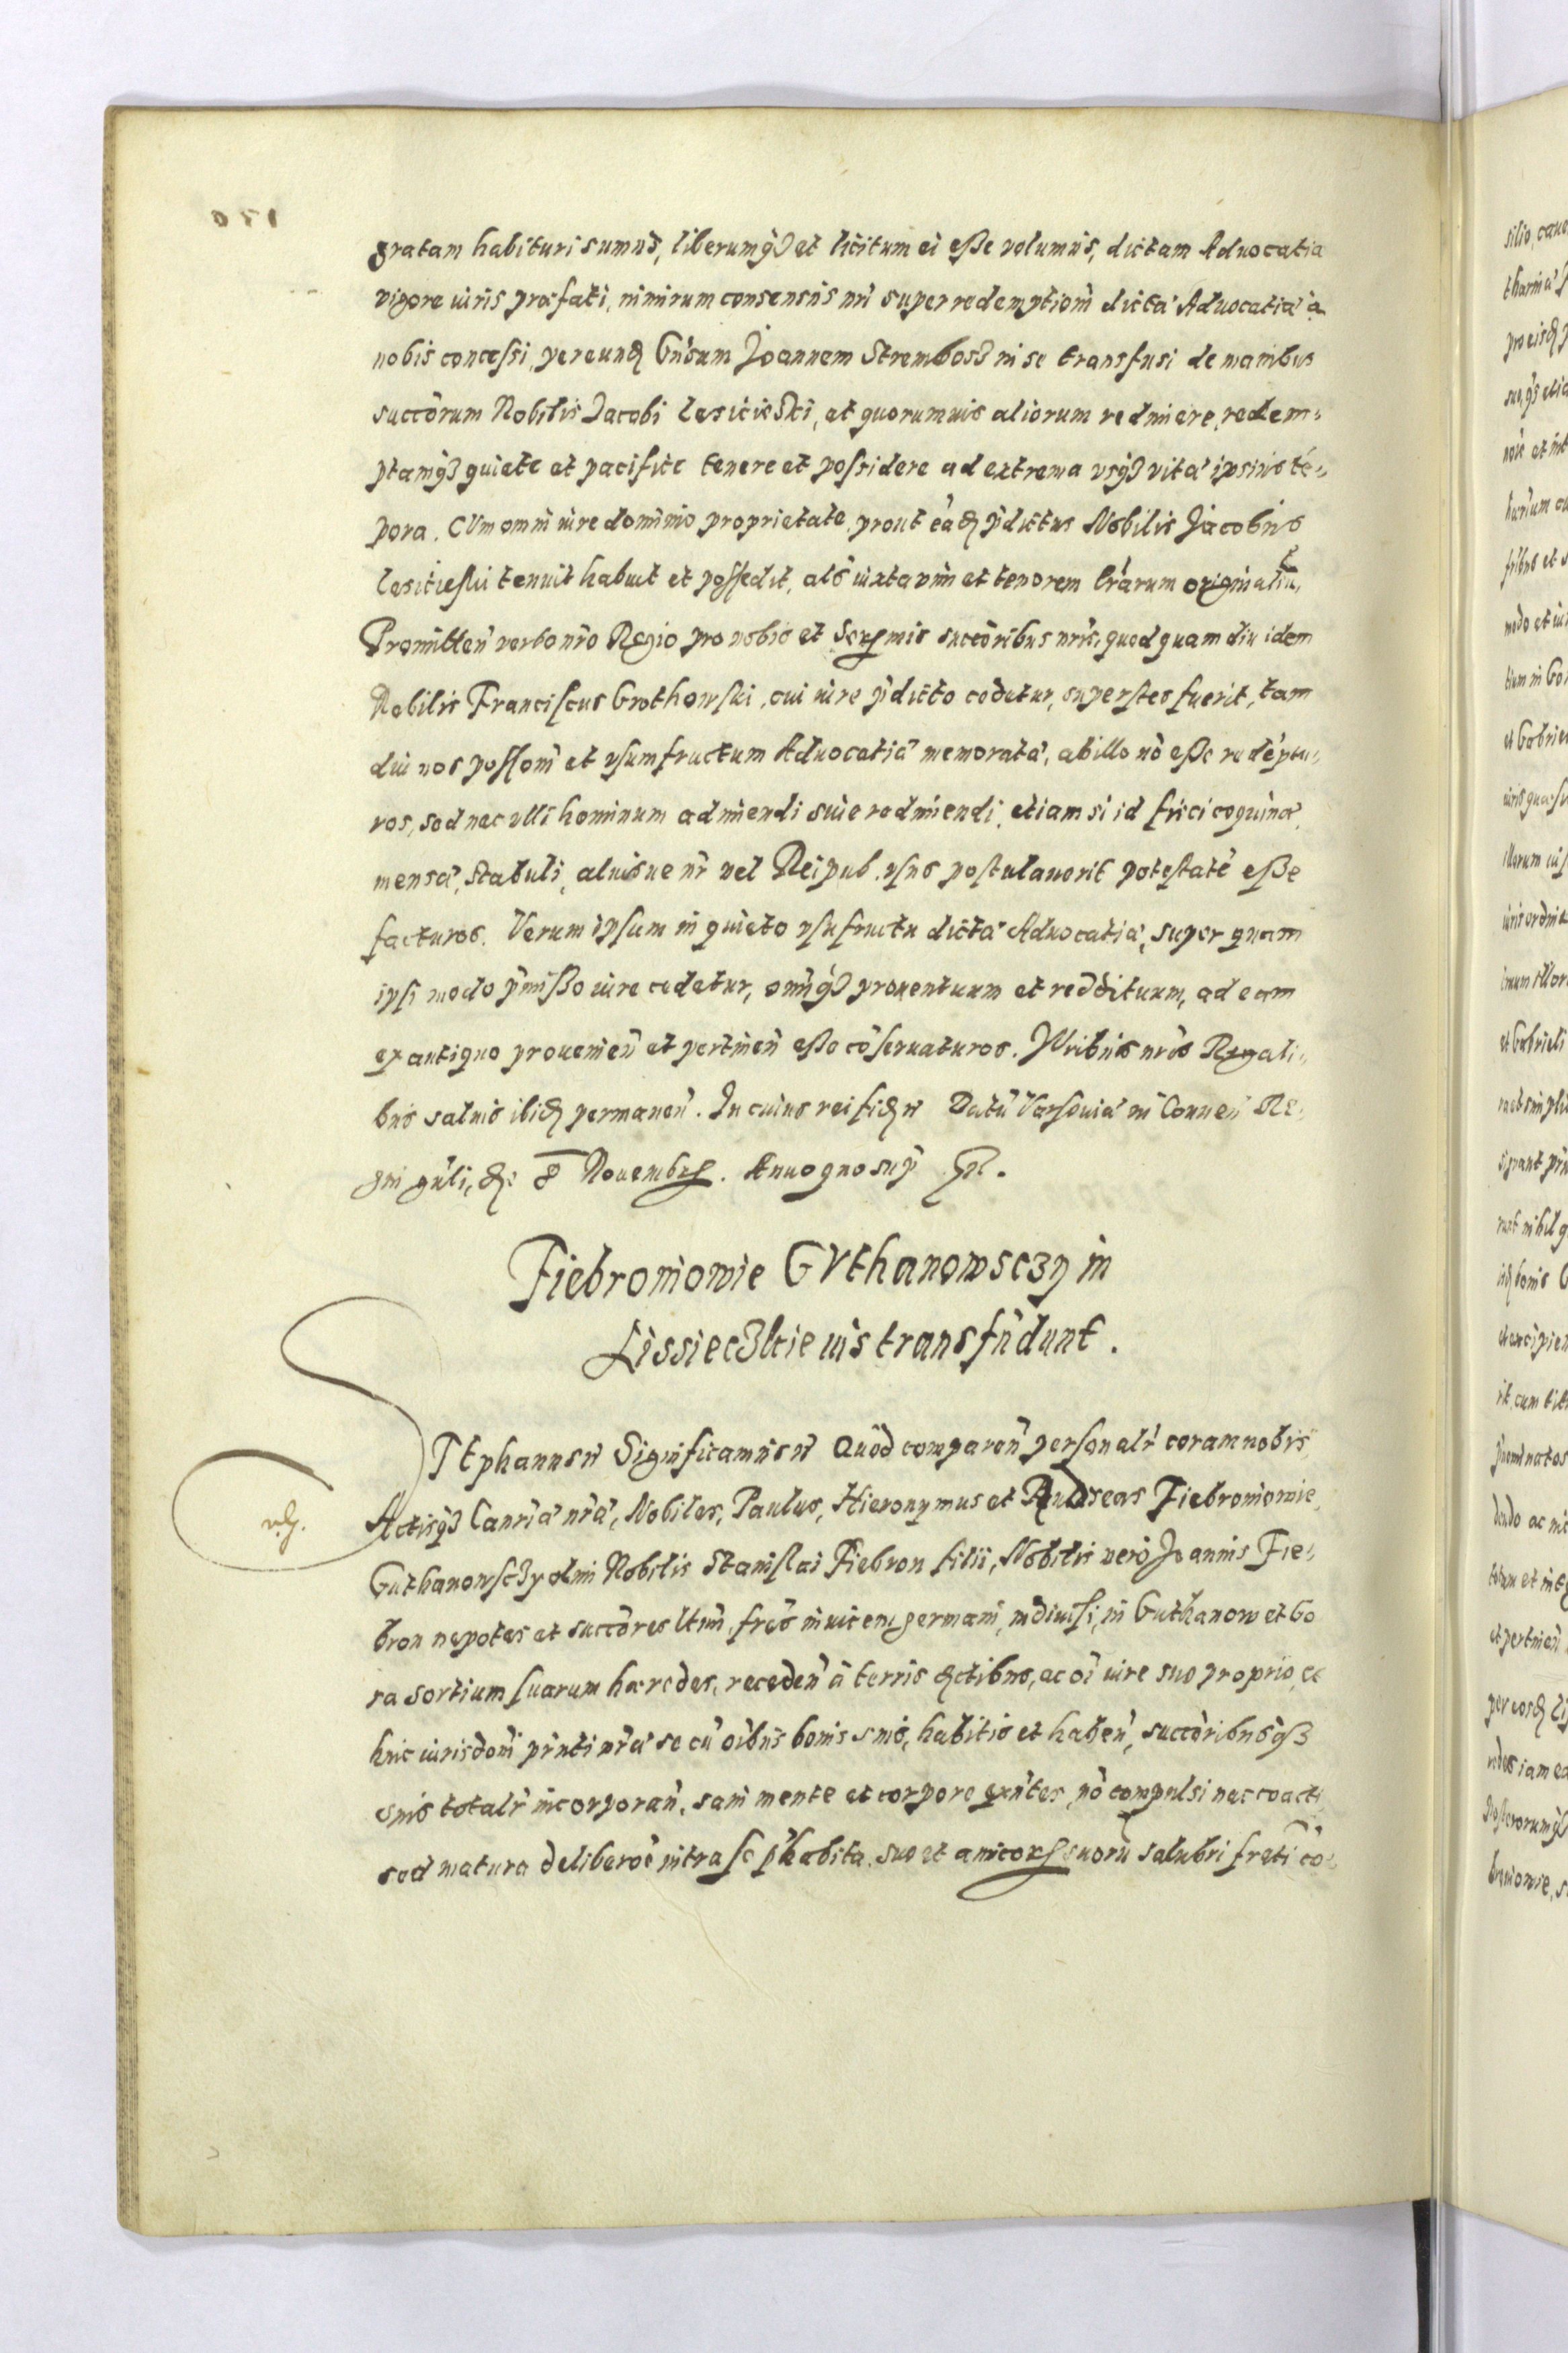 gratam habituri sumus, liberumq3 et licitum ei eße volumus, dictam Aduocatia
vigore iuris præfati, nimirum consensus nri super redemptiom̃ dictæ Aduocatiæ a
nobis concessi, per eund Gnosum Joannem Strembosz in se transfusi de manibus
succorum Nobilis Jacobi Lesiciski, et quorumuis aliorum redimere, redem-
ptamq3 quiete et pacifice tenere et possidere ad extrema vsq3 vitæ ipsius te-
pora. CUm omni iure dominio proprietate prout ead pdictus Nobilis Jacobus
Lesiciesky tenuit habuit et possedit, als iuxta vim et tenorem lrarum originaliu,
Promitten verbo nro Regio pro nobis et Sermis succoribus nris, quod quam diu idem
Nobilis Franciscus Grothowski, cui iure pdicto cedetur, superstes fuerit, tam
diu nos possom̃ et vsumfructum Aduocatiæ memoratæ, ab illo no eße redeptu-
ros, sed nec vlli hominum adimendi suie redimendi, etiam si id fisci coquinæ,
mensæ, stabuli, aluisue nr vel Reipub. vsus postulauerit potestate eße
facturos. Verum ipsum in quieto vsufructu dictæ Aduocatiæ, super quam
ipsi modo pmißo iure cedetur, omiq3 prouentuum et reddituum, ad eam
ex antiquo prouenien et pertinen eße coseruaturos. Juribus nris Regali-
bus saluis ibid permanen. In cuius rei fid r̃ Datu Varsouiæ in Conuen Re-
gni gnli, d: 8 Nouembr. Anno quo sup
Fiebroniowie GVthanowsc3y in
Lissiec3kie ius transfudunt.
STephanus r̃ Significamus r̃ Quod comparen personalr coram nobis,
Actisq3 Canriæ nræ, Nobiles, Paulus, Hieronymus et Andreas Fiebroniowie
Guthanowsc3y olim Nobilis Stanislai Fiebron filii, Nobilis vero Joannis Fie-
bron nepotes et succores ltimi, fres inuicem germani, indiuisi, in Guthanow et Go
ra sortium suarum hæredes, receden a terris dctibus, ac oi iure suo proprio, et
huic iurisdom̃ pnti nræ se cu oibus bonis suis, habitis et haben, succoribusq3
suis totalr incorporan, sani mente et corpore exntes, no compulsi nec coacti
sed matura deliberoe intra se phabita, suo et amicor suoru salubri freti co-